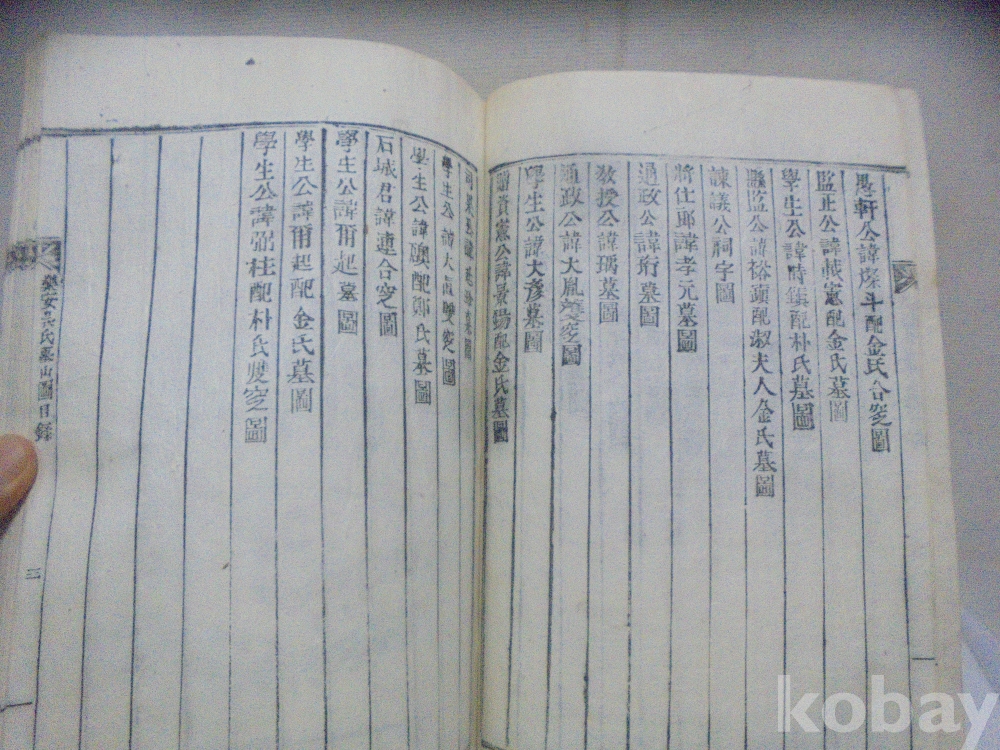 愚軒公諱燦斗配金氏合窆圖
監正公諱載憲配金氏墓圖
學生公諱時鎭配朴氏墓圖
縣監公諱裕顕配淑夫人金氏墓圖
諫議公祠宇圖
將仕郎諱孝元墓圖
通政公諱珩墓圖
敎授公諱瑀墓圖
通政公諱大胤雙窆圖
學生公諱大彦墓圖
資憲公諱景 配金氏墓圖
墓圖
學生公諱大 雙窆圖
學生公諱 配鄭氏墓圖
石城君諱 合窆圖
學生公諱爾起墓圖
學生公諱爾起配金氏墓圖
學生公諱弼柱配朴氏雙窆圖
樂安吳氏墓山圖目錄
三
kobay